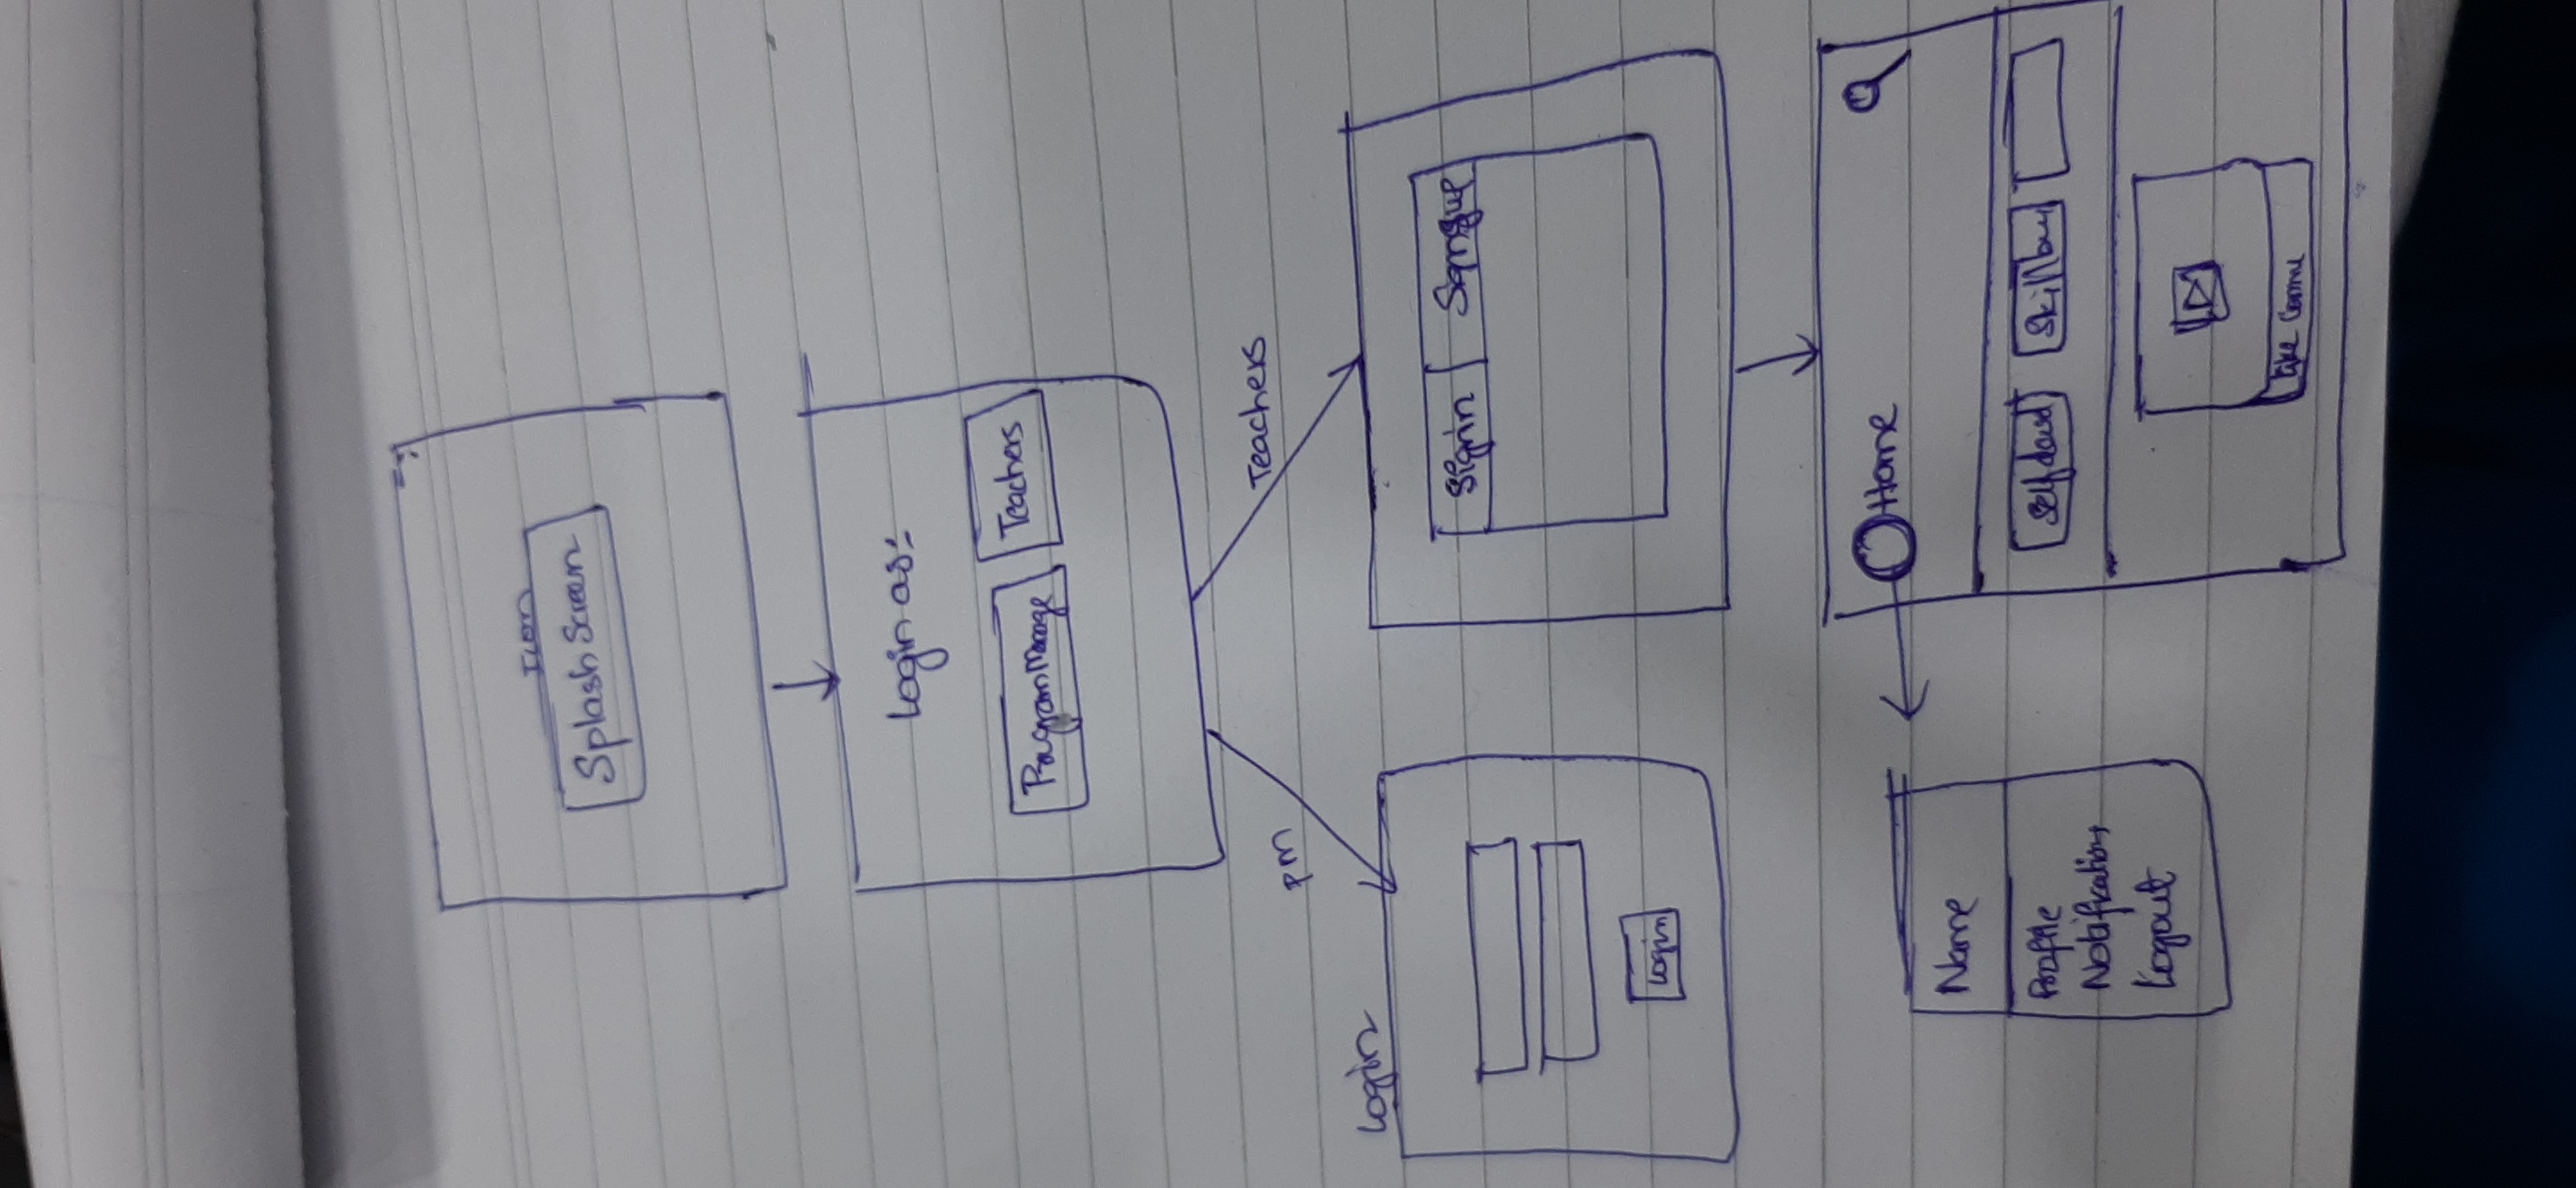 Icon
Splash Screen
Login as:
Program Manage
Teachers
PM
Teachers
Login
Signin
Login
Home
Name
Profile
Notifications
Logout
Skill
Like Comme